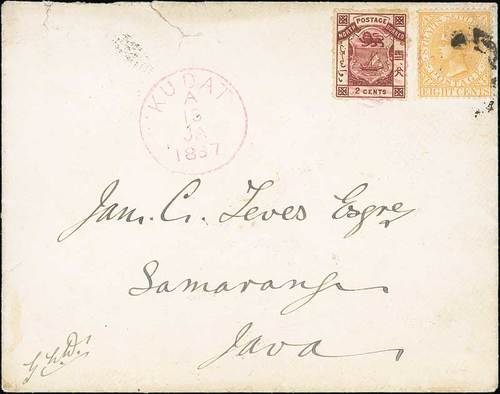 NORTH POSTAGE BORNEO
2 CENTS
STRAITS SETTLEMENTS
POSTAGE
EIGHT CENTS
KUDAT
A
13
JA
1887
Jan. C. Teves Esqre
Samarang
Java